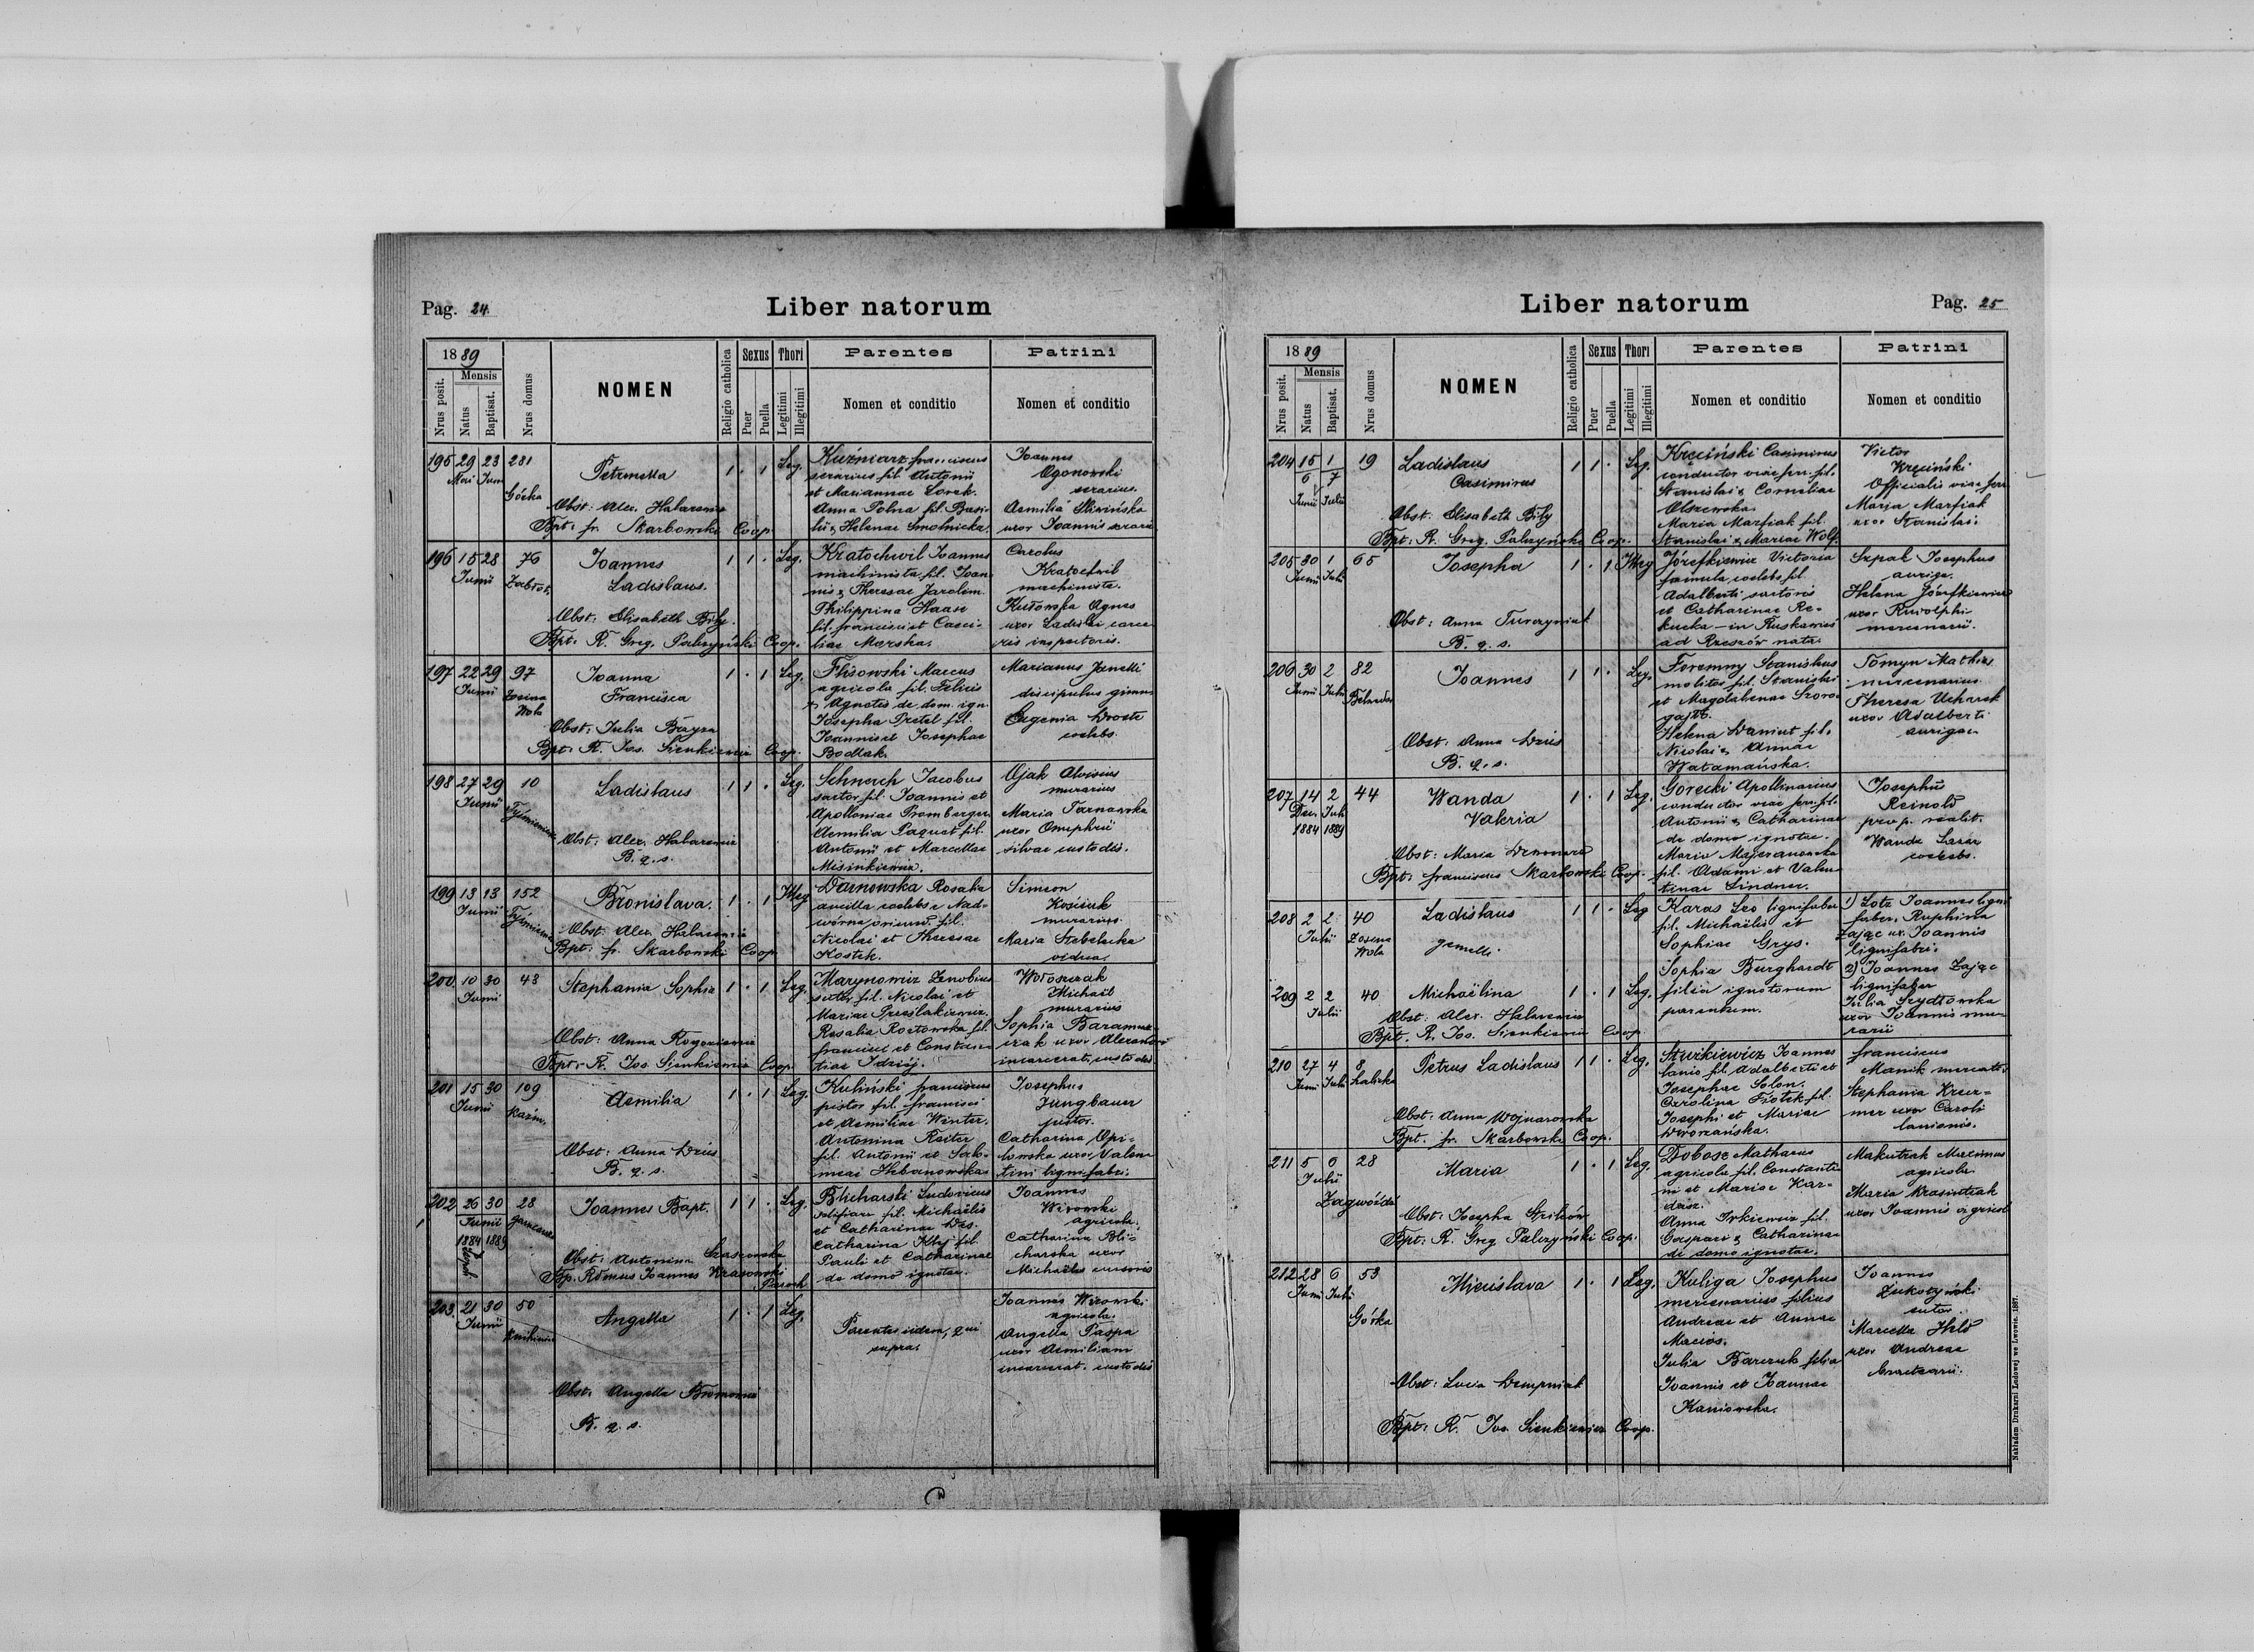 Pag. 24
Liber natorum
1889
Nrus posit.
Mensis
Natus
Baptisat.
Nrus domus
NOMEN
Religio catholica
Sexus
Puer
Puella
Thori
Legitimi
Illegitimi
Parentes
Nomen et conditio
Patrini
Nomen et conditio
195 29 Mai 23 Juni 281 Górka
Petronella
1 · 1 Leg.
Obst: Alex. Habarewicz
Bpt: fr. Skarbowski Coop.
Kuźniarz franciscus
serarius fil Antonii
et Mariannae Lorek.
Anna Polna fil. Basi-
lii & Helenae Smolnicka.
Joannes
Ogonowski
serarius.
Aemilia Śliwińska
uxor Joannis serarii
196 15 28 Junii 76 Zabłot.
Joannes
Ladislaus.
1 1 · Leg.
Obst: Elisabeth Biły.
Bpt: R. Greg. Palczyński Coop.
Kratochwil Joannes
machinista fil. Joan-
nis & Theresae Jarolim.
Philippina Haase
fil. francisci et Caeci-
liae Marska.
Carolus
Kratochwil
machinista.
Kutowska Agnes
uxor Ladislai carce
ris inspectoris.
197 22 29 Junii 97 Zosina Wola
Joanna
Francisca
1 · 1 Leg.
Obst: Julia Bayra
Bpt: R. Jos. Sienkiewicz Coop.
Flisowski Marcus
agricola fil. Felicis
& Agnetis de dom. ign.
Josepha Pretel fil.
Joannis et Josephae
Bodlak.
Marianus Janelli
discipulus gimn
Eugenia Droste
coelebs.
198 27 29 Junii 10 Tyśmienica
Ladislaus
1 1 · Leg.
Obst: Alex. Habarewicz
B. q. s.
Schnerch Jacobus
sartor fil. Joannis et
Apolloniae Promberger
Aemilia Paquet fil.
Antonii et Marcellae
Misinkiewicz.
Ojak Aloisius
murarius
Maria Tarnawska
uxor Onuphrii
silvae custodis.
199 13 13 Junii 152
Bronislava.
1 · 1 Illeg
Obst: Alex. Habarewicz
Bpt: fr. Skarbowski Coop.
Darnowska Rosalia
ancilla coelebs e Nad-
wórna oriund. fil.
Nicolai et Theresae
Kostek.
Simeon
Kosiuk
murarius.
Maria Stebelecka
vidua.
200 10 30 Junii 43
Stephania Sophia
1 · 1 Leg.
Obst: Anna Rogoziewicz
Bpt: R. Jos Sienkiewicz Coop.
Marynowicz Zenobius
sutor fil. Nicolai et
Mariae Przeslakiewicz.
Rosalia Rostowska fil.
francisci et Constan-
tiae Idziój.
Wołoszczak
Michaël
murarius
Sophia
uxor Alexandri
incarcerat. custodis
201 15 30 Junii 109
Aemilia
1 · 1 Leg.
Obst: Anna Dzius
B. q. s.
Kuliński franciscus
pistor fil. francisci
et Aemiliae Winter.
Antonina Raiter
fil. Antonii et Salo-
meae Hrbanowska
Josephus
Jungbauer
pistor.
Catharina Opi-
łowska uxor Valen
tini lignifabri.
202 26 30 Junii 1884 1889 28
Joannes Bapt.
1 1 · Leg.
Obst: Antonina Szaszowska
Bp. Rdmus Joannes Krasowski
Paroch
Blicharski Ludovicus
fil. Michaëlis
et Catharinae Des.
Catharina Klej fil.
Pauli et Catharinae
de domo ignotae.
Joannes
Wizowski
agricola.
Catharina Bli-
charska uxor
Michaëlis
203. 21 30 Junii 50 Knihinin
Angella
1 · 1 Leg.
Obst: Angella
B. q. s.
Parentes iidem, qui
supra.
Joannes Wizowski
agricola.
Angella Paspa
uxor Aemiliani
incarcerat. custodis
Liber natorum
Pag. 25
1889
Nrus posit.
Mensis
Natus
Baptisat.
Nrus domus
NOMEN
Religio catholica
Sexus
Puer
Puella
Thori
Legitimi
Illegitimi
Parentes
Nomen et conditio
Patrini
Nomen et conditio
204 15/6 Junii 1/7 Julii 19
Ladislaus
Casimirus
1 1 · Leg.
Obst: Elisabeth Biły
Bpt: R. Greg. Palczyński Coop.
Kręciński Casimirus
conductor viae ferr. fil.
Stanislai & Corneliae
Olszewska.
Maria Marfiak fil.
Stanislai & Mariae Wolf.
Victor
Kręciński
Officialis viae ferr
Maria Marfiak
uxor Stanislai.
205 30 Junii 1 Julii 65
Josepha
1 · 1 Illeg
Obst: Anna Tuvczyniuk
B. q. s.
Józefkiewicz Victoria
famula coelebs fil.
Adalberti sartoris
et Catharinae Re-
kucka – in Ruskawieś
ad Rzeszów nata
Szpak Josephus
auriga.
Helena Józefkiewicz
uxor Rudolphi
mercenarii.
206 30 Junii 2 Julii 82
Joannes
1 1 · Leg.
Obst: Anna Dzius
B. q. s.
Foremny Stanislaus
molitor fil. Stanislai
et Magdalenae Szara-
Helena Daniut fil.
Nicolai & Annae
Watamańska.
Tomyn Mathias
mercenarius
Theresa Ucharek
uxor Adalberti
aurigae
207 14 Dec. 1884 2 Julii 1889 44
Wanda
Valeria
1 · 1 Leg.
Obst: Maria
Bpt: franciscus Skarbowski Coop.
Gorecki Apollinarius
conductor viae ferr. fil.
Antonii & Catharinae
de domo ignotae.
Maria Majeranowska
fil. Adami et Valen
tinae Lindner.
Josephus
Reinold
prop. realit.
Wanda
coelebs.
208 2 2 Julii 40 Zosina Wola
Ladislaus
gemelli.
1 1 · Leg
Karas Leo lignifaber
fil. Michaëlis et
Sophiae Grys.
Sophia Burghardt
filia ignotorum
parentum.
1) Lotz Joannes ligni
faber, Ruphina
Zając ux. Joannis
lignifabri.
209 2 2 Julii 40
Michaëlina
1 · 1 Leg.
Obst: Alex. Habarewicz
Bpt: R. Jos. Sienkiewicz Coop.
2) Joannes Zając
lignifaber
Julia Szydłowska
uxor Joannis mu-
rarii
210 27 Junii 4 Julii 8
Petrus Ladislaus
1 1 · Leg.
Obst: Anna Wojnarowska
Bpt: fr. Skarbowski Coop.
Joannes
lanio fil. Adalberti et
Josephae Solon.
Carolina Fiotek fil.
Josephi et Mariae
Dworzańska.
franciscus
Manik mercator
Stephania Kreuz-
mer uxor Caroli
lanionis.
211 5 6 Julii 28 Zagwóźdź
Maria
1 · 1 Leg.
Obst: Josepha
Bpt: R. Greg Palczyński Coop.
Dobosz Mathaeus
agricola fil. Constanti
ni et Mariae Kar-
dasz.
Anna Irkiewicz fil.
Gaspari & Catharinae
de domo ignotae.
Makutrak Maximus
agricola.
Maria Krasiutzak
uxor Joannis agricol
212 28 Junii 6 Julii 53 Górka
Miecislava
1 · 1 Leg.
Obst: Lucia Dempniak
Bpt: R. Jos Sienkiewicz Coop.
Kuliga Josephus
mercenarius filius
Andreae et Annae
Macios.
Julia Barczuk filia
Joannis et Joannae
Kaniowska.
Joannes
Żukotyński
sutor.
Marcella Held
uxor Andreae
Nakładem Drukarni Ludowej we Lwowie. 1887.